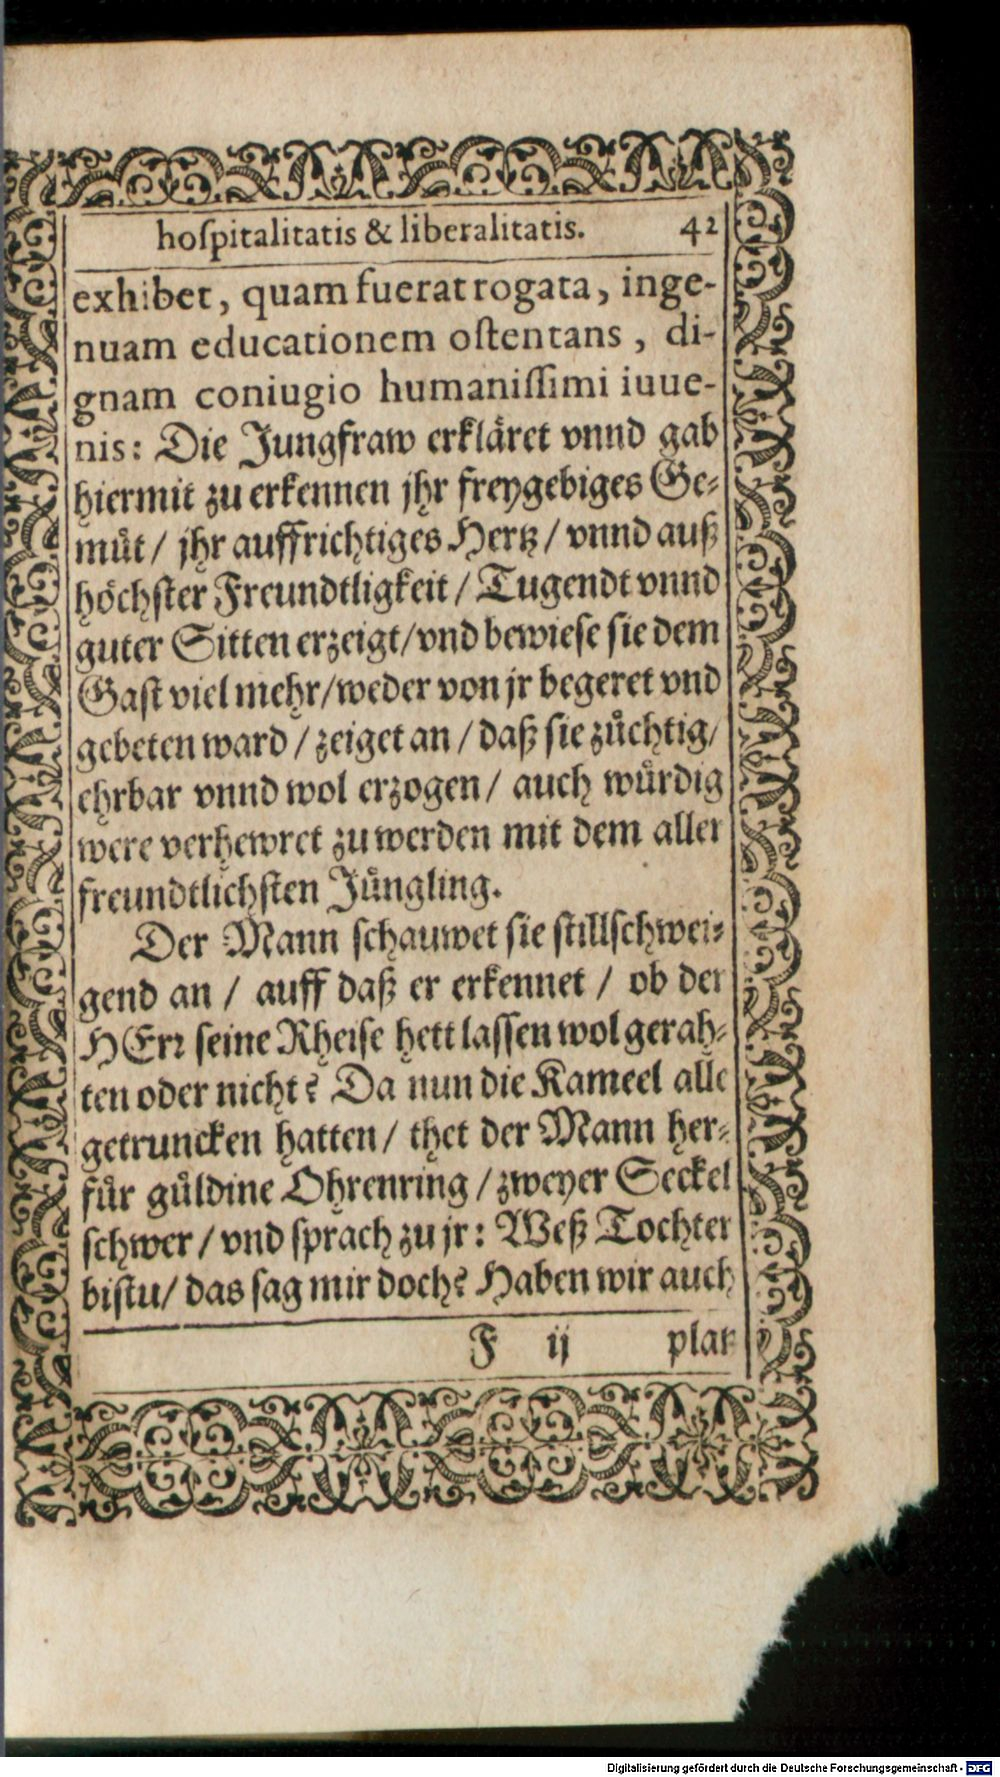 hoſpitalitatis & liberalitatis. 42
exhibet, quam fuerat rogata, inge-
nuam educationem oſtentans, di-
gnam coniugio humaniſſimi iuue-
nis: Die Jungfraw erkläret vnnd gab
hiermit zu erkennen jhr freygebiges Ge-
muͤt / jhr auffrichtiges Hertz / vnnd auß
hoͤchſter Freundtligkeit / Tugendt vnnd
guter Sitten erzeigt / vnd bewieſe ſie dem
Gaſt viel mehr / weder von jr begeret vnd
gebeten ward / zeiget an / daß ſie zuͤchtig /
ehrbar vnnd wol erzogen / auch wuͤrdig
were verhewret zu werden mit dem aller
freundtlichſten Juͤngling.
Der Mann ſchauwet ſie ſtillſchwei-
gend an / auff daß er erkennet / ob der
HErꝛ ſeine Rheiſe hett laſſen wol gerah-
ten oder nicht? Da nun die Kameel alle
getruncken hatten / thet der Mann her-
fuͤr guͤldine Ohrenring / zweyer Seckel
ſchwer / vnd ſprach zu jr: Weß Tochter
biſtu / das ſag mir doch? Haben wir auch
F ij platz
Digitalisierung gefördert durch die Deutsche Forschungsgemeinschaft - DFG